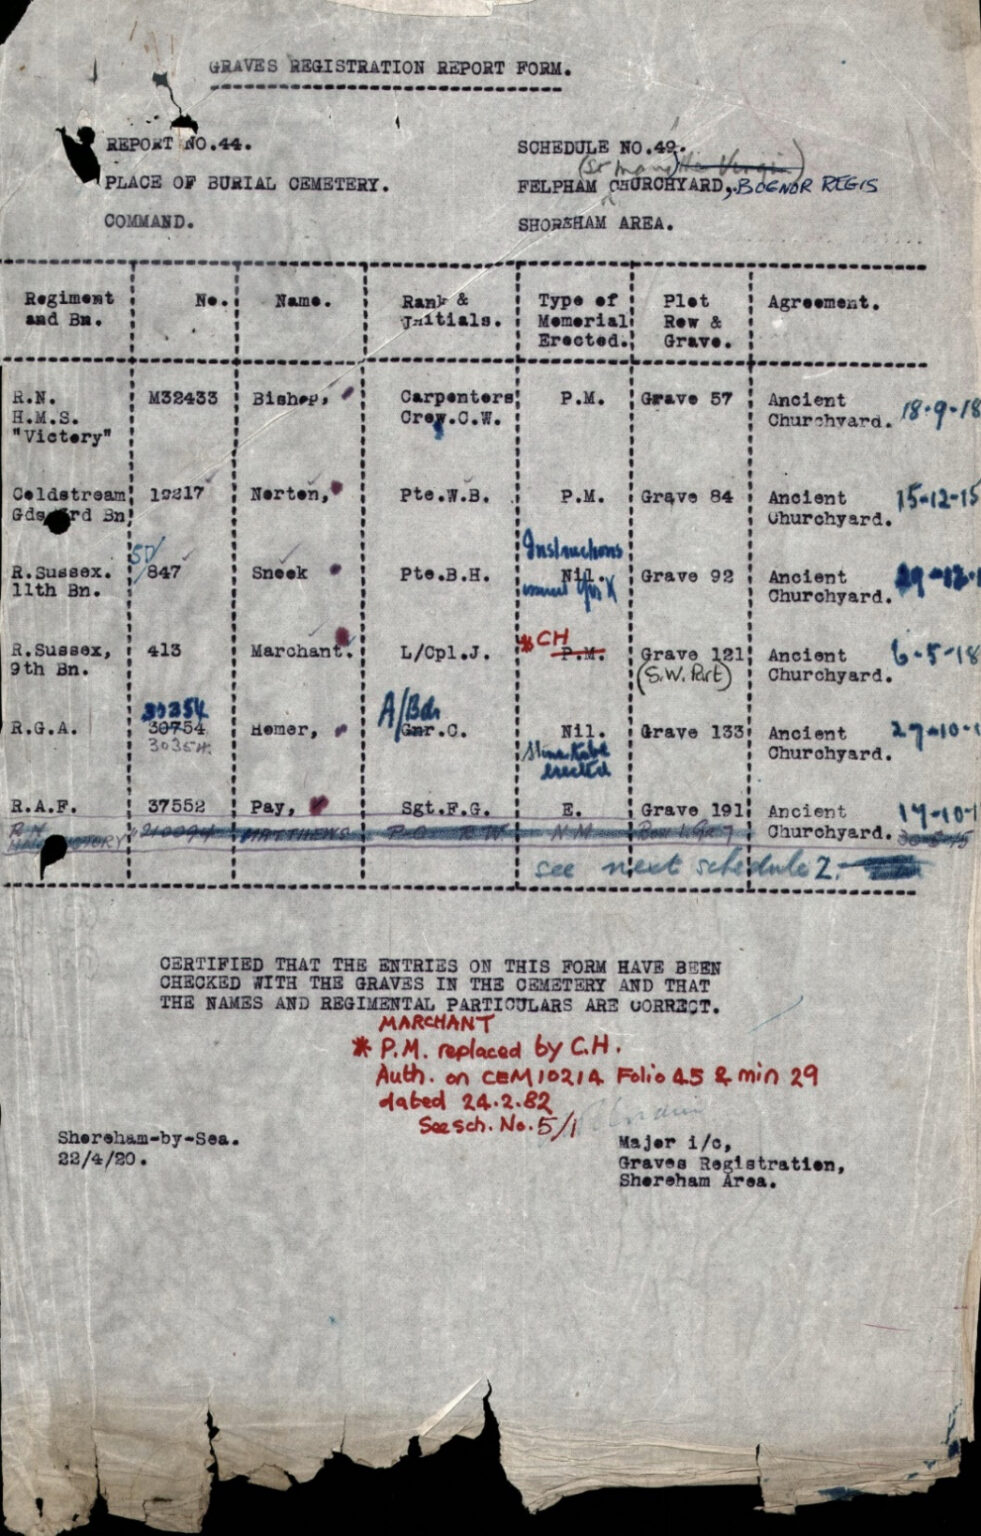 GRAVES REGISTRATION REPORT FORM.
REPORT NO.44.
SCHEDULE NO.49.
(St Mary the Virgin)
PLACE OF BURIAL CEMETERY.
FELPHAM CHURCHYARD, BOGNOR REGIS
COMMAND.
SHOREHAM AREA.
Regiment and Bn. No. Name. Rank & Initials. Type of Memorial Erected. Plot Row & Grave. Agreement.
R.N. M32433 Bishop, Carpenters P.M. Grave 57 Ancient
H.M.S. Crew.C.W. Churchyard. 18-9-18
"Victory"
Coldstream 12217 Norton, Pte.W.B. P.M. Grave 84 Ancient 15-12-15
Gds 3rd Bn Churchyard.
SD/ Instructions
R.Sussex. /847 Sneek Pte.B.H. Nil. Grave 92 Ancient
11th Bn. issued Churchyard.
* CH
R.Sussex, 413 Marchant. L/Cpl.J. P.M. Grave 121 Ancient 6-5-18
9th Bn. (S.W. Part) Churchyard.
30354 A/Bdr
R.G.A. 30754 Homer, Gnr.C. Nil. Grave 133 Ancient 27-10-
30354 erected Churchyard.
R.A.F. 37552 Pay, Sgt.F.G. E. Grave 191 Ancient
R.N. 210094 MATTHEWS P.O. R W N.M. Row 1. Gr 7 Churchyard. 30-5-15
VICTORY
see next schedule 2.
CERTIFIED THAT THE ENTRIES ON THIS FORM HAVE BEEN
CHECKED WITH THE GRAVES IN THE CEMETERY AND THAT
THE NAMES AND REGIMENTAL PARTICULARS ARE CORRECT.
MARCHANT
* P.M. replaced by C.H.
Auth. on CEM10214 Folio 45 & min 29
dated 24.2.82
See sch. No. 5/1
Shoreham-by-Sea.
22/4/20.
Major i/c,
Graves Registration,
Shoreham Area.